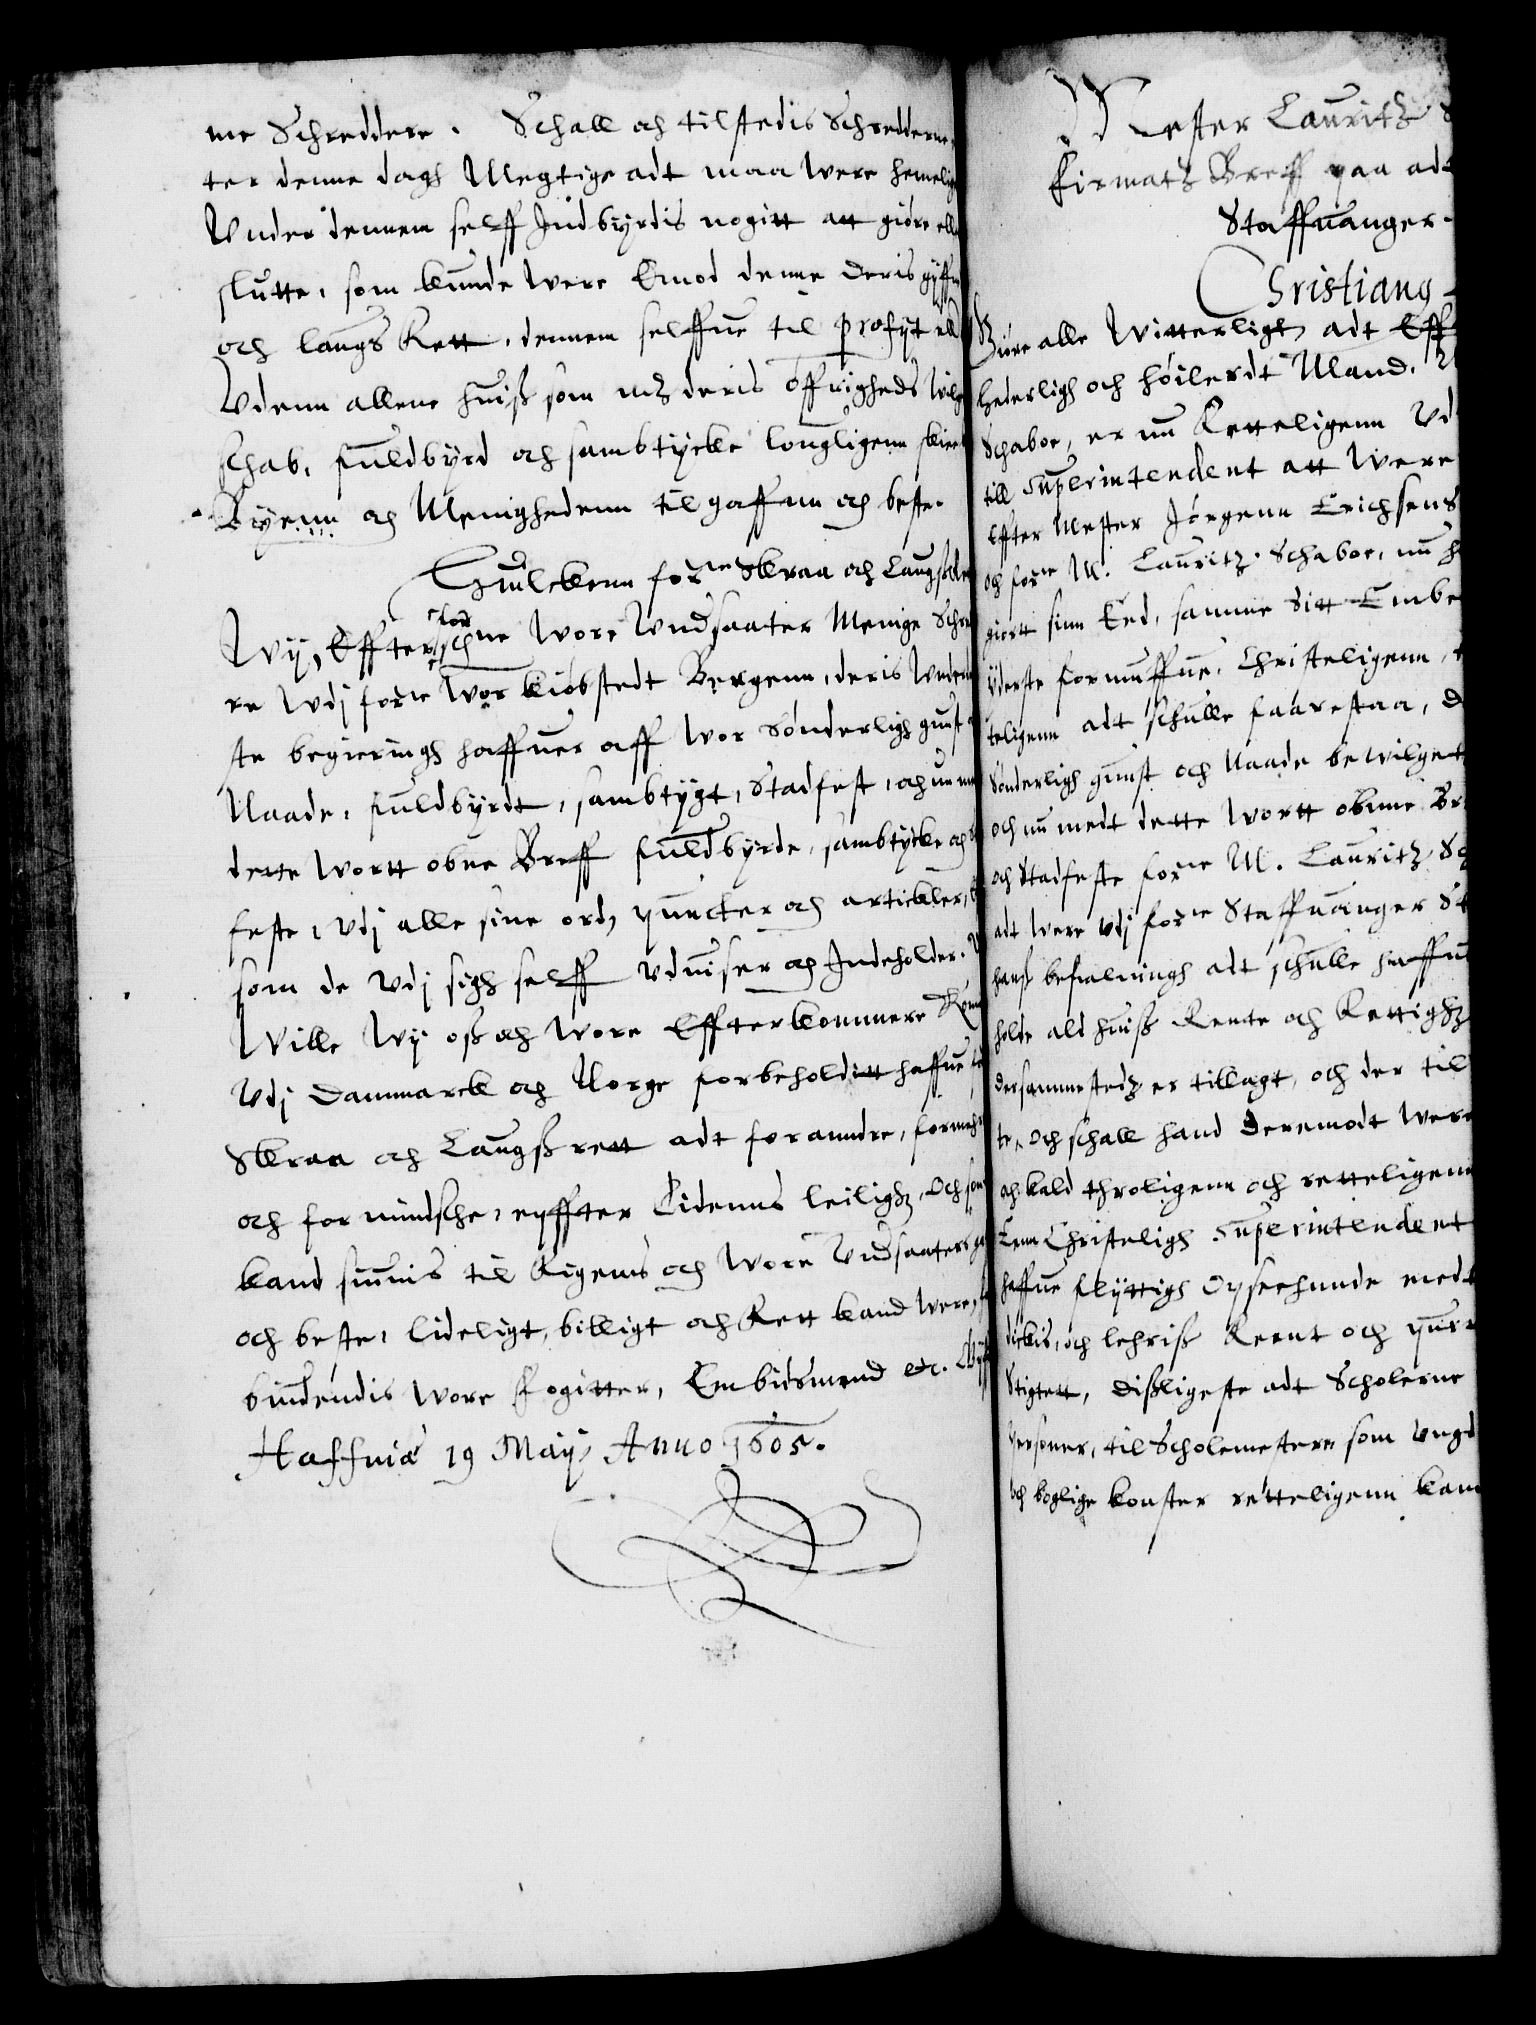 me Schreddere. Schall och tilstedis Schredderne
ter denne dags Megtige adt maa were hemelig
Vnder dennem selff Jndbyrdis nogitt att giøre elle
slutte, som kunde were Emod denne deris gyff
och laugs Rett, dennem selffue til profyt
Vdenn allene huiß som mz deris øffrigheds
schab, fuldbyrd och sambtycke lougligenn
Byenn och Menighedenn til gaffnn och beste.
Huilckenn forne Skraa och Laugs
Wy, Effter forschne Wore Vndsaater Menige Schre
re Vdj forne Wor kiøbstedt Bergenn, deris Vnder
ste begierings haffuer aff Wor Sønderligh gunst
Naade, fuldbyrdt, sambtygt, Stadfest, och nu
dette Wortt obne Breff fuldbyrde, sambtycke och
feste, Vdj alle sine ord, puncter och artickler,
som de Vdj sigh selff Vduiser och Jndeholder.
Wille Wy oß och Wore Effterkommere
Vdj Dannmarck och Norge forbeholditt haffue
Skraa och Laugß rett adt forandre,
och formindsche, epffter Tidenns leilighz, Och som
kand sinnis til Rigens och Wore Vndsaaters
och beste, lideligt, billigt och Rett kand were,
bindendis Wore fogitter, Embidsmend etc.
Haffniæ 19 Maij Anno 1605.
Mester Lauritz
firmatz Breff paa adt
Staffuanger.
Christianq
Giøre alle Witterligt, adt Eff
Hederligh och høilerdt Mand.
Schaboe, er nu Retteligenn Vd
till Superintendent att Were
Effter Mester Jørgenn Erichsens
och forne M. Lauritz Schaboe, nu
giortt sinn Eed, samme Sitt Embe
Yderste formuffue, Christeligenn,
teligenn adt schulle faarestaa,
Sønderligh gunst och Naade bewilget
och nu medt dette Wortt obnne Br
och Stadfeste forne M. Lauritz Sch
adt Were vdj forne Staffuanger St
hanß befalnings adt schulle haffue
holde ald huiß Rente och Rettighz
dersammestedz er tillagt, och der til
te, Och schall hand deremodt Were
och kald throligenn och retteligenn
Enn Christeligh Superintendent
haffue flyttigh Opseehunde med
dickis, och lehriß Reent och
Stigtett, dißligeste adt Scholerne
Personer, til Scholemestere som Vngd
och boglige konster retteligenn kand